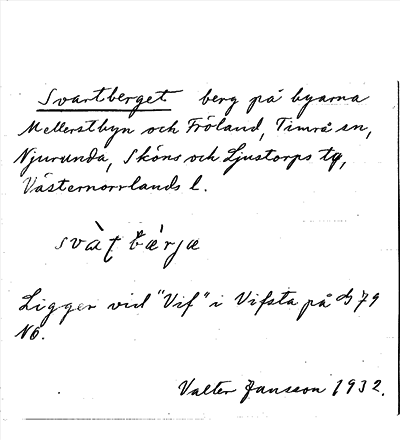 Svartberget berg på byarna
Mellerstbyn och Fröland, Timrå sn,
Njurunda, Sköns och Ljustorps tg,
Västernorrlands l.
svàt bærjæ
Ligger vid "Vif" i Vifsta på 79
NO.
Valter Jansson 1932.